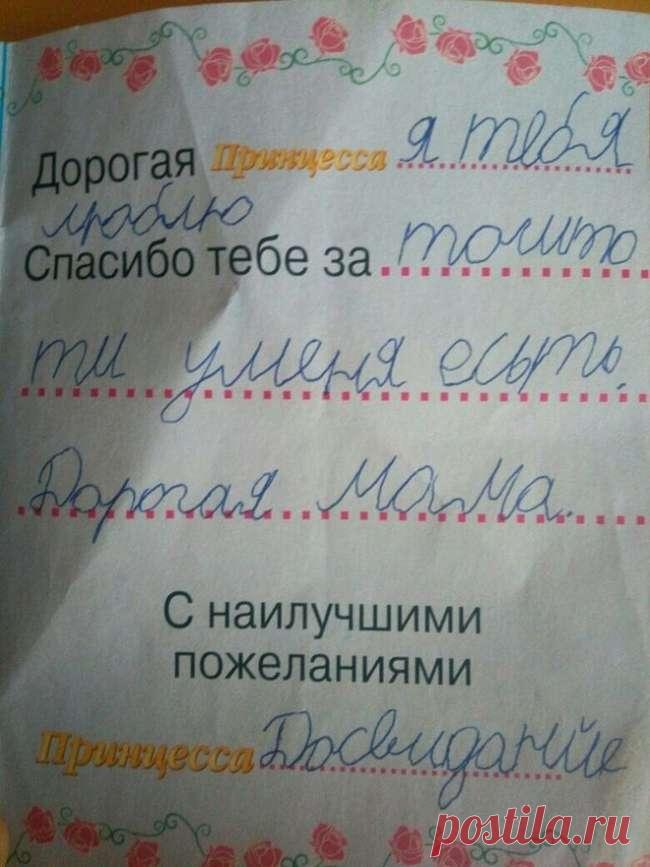 Дорогая Принцесса я тебя
люблю
Спасибо тебе за тошто
ти уменя есыть.
Дорогая мама.
С наилучшими
пожеланиями
Принцесса Досвиданйе
postila.ru